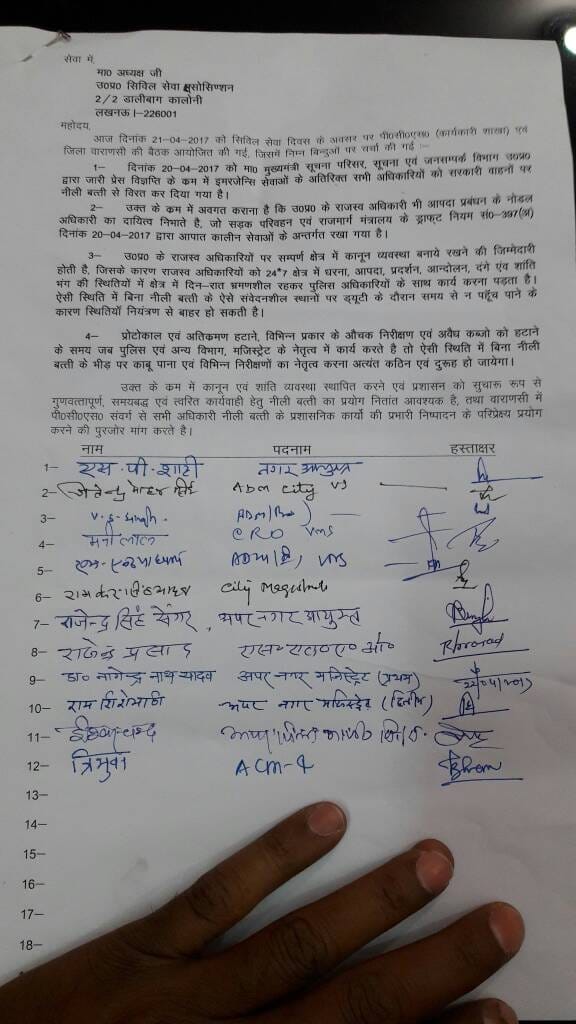 सेवा में,
मा0 अध्यक्ष जी
उ0प्र0 सिविल सेवा एसोसिएशन
2/2 डालीबाग कालोनी
लखनऊ।-226001
महोदय,
आज दिनांक 21-04-2017 को सिविल सेवा दिवस के अवसर पर पी0सी0एस0 (कार्यकारी शाखा) एवं
जिला वाराणसी की बैठक आयोजित की गई, जिसमें निम्न बिन्दुओं पर चर्चा की गई :-
1— दिनांक 20-04-2017 को मा0 मुख्यमंत्री सूचना परिसर, सूचना एवं जनसम्पर्क विभाग उ0प्र0
द्वारा जारी प्रेस विज्ञप्ति के कम में इमरजेन्सि सेवाओं के अतिरिक्त सभी अधिकारियों को सरकारी वाहनों पर
नीली बत्ती से विरत कर दिया गया है।
2— उक्त के कम में अवगत कराना है कि उ0प्र0 के राजस्व अधिकारी भी आपदा प्रबंधन के नोडल
अधिकारी का दायित्व निभाते है, जो सड़क परिवहन एवं राजमार्ग मंत्रालय के ड्राफ्ट नियम सं0-397(अ)
दिनांक 20-04-2017 द्वारा आपात कालीन सेवाओं के अन्तर्गत रखा गया है।
3— उ0प्र0 के राजस्व अधिकारियों पर सम्पर्ण क्षेत्र में कानून व्यवस्था बनाये रखने की जिम्मेदारी
होती है, जिसके कारण राजस्व अधिकारियों को 24*7 क्षेत्र में धरना, आपदा, प्रदर्शन, आन्दोलन, दंगे एंव शांति
भंग की स्थितियों में क्षेत्र में दिन-रात भ्रमणशील रहकर पुलिस अधिकारियों के साथ कार्य करना पड़ता है।
ऐसी स्थिति में बिना नीली बत्ती के ऐसे संवेदनशील स्थानों पर ड्यूटी के दौरान समय से न पहूँच पाने के
कारण स्थितियॉ नियंत्रण से बाहर हो सकती है।
4— प्रोटोकाल एवं अतिकमण हटाने, विभिन्न प्रकार के औचक निरीक्षण एवं अवैघ कब्जो को हटाने
के समय जब पुलिस एवं अन्य विभाग, मजिस्ट्रेट के नेतृत्व में कार्य करते है तो ऐसी स्थिति में बिना नीली
बत्ती के भीड़ पर काबू पाना एवं विभिन्न निरीक्षणों का नेतृत्व करना अत्यंत कठिन एवं दुरूह हो जायेगा।
उक्त के कम में कानून एवं शांति व्यवस्था स्थापित करने एवं प्रशासन को सुचारू रूप से
गुणवत्तापूर्ण, समयबद्व एवं त्वरित कार्यवाही हेतु नीली बत्ती का प्रयोग नितांत आवश्यक है, तथा वाराणसी में
पी0सी0एस0 संवर्ग से सभी अधिकारी नीली बत्ती के प्रशासनिक कार्यो की प्रभारी निष्पादन के परिप्रेक्ष्य प्रयोग
करने की पुरजोर मांग करते है।
नाम पदनाम हस्ताक्षर
1— एस.पी.शाही नगर
2— ADM City
3— V.S. Singh. ADM
4— मनी लाल CRO VNS
5— VNS
6— City
7— राजेन्द्र सिंह सेंगर, अपर नगर आयुक्त
8— राजेन्द्र प्रसाद एस०एल०ए०ओ०
9— डा० नागेन्द्र नाथ यादव अपर नगर मजिस्ट्रेट (प्रथम) 22/04/2017
10— अपर नगर मजिस्ट्रेट (द्वितीय)
11—
12— ACM-4
13—
14—
15—
16—
17—
18—